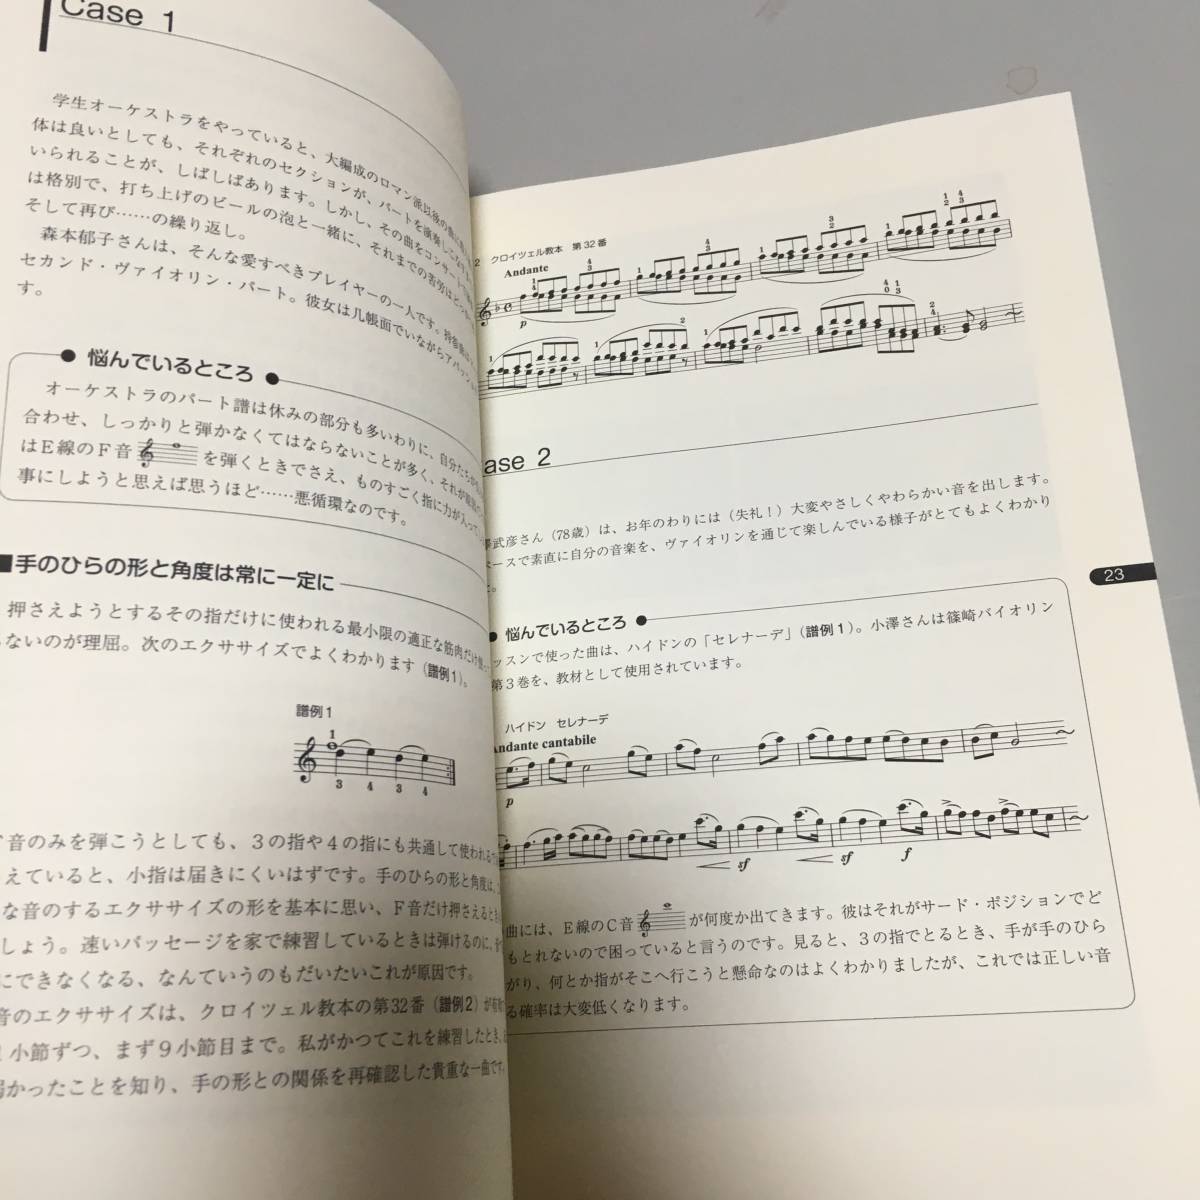 Case 1
学生オーケストラをやっていると、大編成のロマン派以後の曲に
体は良いとしても、それぞれのセクションが、パートを演奏しこなす
いられることが、しばしばあります。しかし、その曲をコンサート
は格別で、打ち上げのビールの泡と一緒に、それまでの苦労は
そして再び……の繰り返し。
森本郁子さんは、そんな愛すべきプレイヤーの一人です。
セカンド・ヴァイオリン・パート。彼女は几帳面でいながらアパッショ
す。
悩んでいるところ
オーケストラのパート譜は休みの部分も多いわりに、自分たちが
合わせ、しっかりと弾かなくてはならないことが多く、それが
はE線のF音を弾くときでさえ、ものすごく指に力が入って
事にしようと思えば思うほど……悪循環なのです。
■手のひらの形と角度は常に一定に
押さえようとするその指だけに使われる最小限の適正な筋肉だけ
ないのが理屈。次のエクササイズでよくわかります(譜例1)。
譜例1
1
3 4 3 4
音のみを弾こうとしても、3の指や4の指にも共通して使われる
えていると、小指は届きにくいはずです。手のひらの形と角度は、
な音のするエクササイズの形を基本に思い、F音だけ押さえると
しょう。速いパッセージを家で練習しているときは弾けるのに、
にできなくなる、なんていうのもだいたいこれが原因です。
音のエクササイズは、クロイツェル教本の第32番(譜例2)が
小節ずつ、まず9小節目まで。私がかつてこれを練習したとき、
弱かったことを知り、手の形との関係を再確認した貴重な一曲です
2 クロイツェル教本 第32番
Andante
p
ase 2
澤武彦さん(78歳)は、お年のわりには(失礼!)大変やさしくやわらかい音を出します。
ペースで素直に自分の音楽を、ヴァイオリンを通じて楽しんでいる様子がとてもよくわかり
た。
23
悩んでいるところ
ッスンで使った曲は、ハイドンの「セレナーデ」(譜例1)。小澤さんは篠崎バイオリン
第3巻を、教材として使用されています。
ハイドン セレナーデ
Andante cantabile
p
sf sf f
曲には、E線のC音が何度か出てきます。彼はそれがサード・ポジションでど
もとれないので困っていると言うのです。見ると、3の指でとるとき、手が手のひら
がり、何とか指がそこへ行こうと懸命なのはよくわかりましたが、これでは正しい音
る確率は大変低くなります。